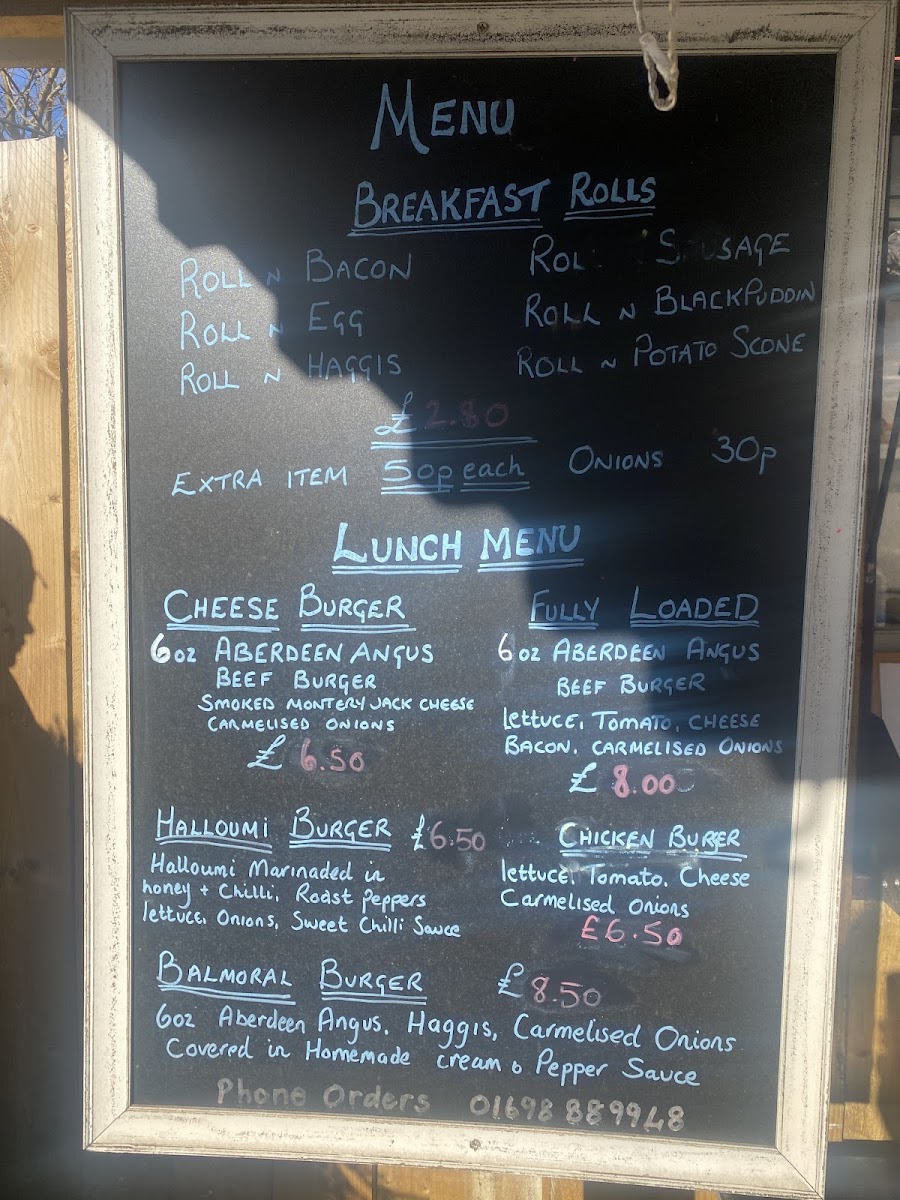 MENU
BREAKFAST ROLLS
ROLL N BACON
ROLL N EGG
ROLL N HAGGIS
ROL SAUSAGE
ROLL N BLACKPUDDIN
ROLL N POTATO SCONE
£2.80
EXTRA ITEM 50p each ONIONS 30p
LUNCH MENU
CHEESE BURGER
6oz ABERDEEN ANGUS
BEEF BURGER
SMOKED MONTERY JACK CHEESE
CARMELISED ONIONS
£6.50
FULLY LOADED
6oz ABERDEEN ANGUS
BEEF BURGER
lettuce, TOMATO, CHEESE
BACON, CARMELISED ONIONS
£8.00
HALLOUMI BURGER £6.50
Halloumi Marinaded in
honey + Chilli, Roast Peppers
lettuce, Onions, Sweet Chilli Sauce
CHICKEN BURGER
lettuce, Tomato, Cheese
Carmelised Onions
£6.50
BALMORAL BURGER £8.50
6oz Aberdeen Angus, Haggis, Carmelised Onions
Covered in Homemade cream & Pepper Sauce
Phone Orders 01698 889948